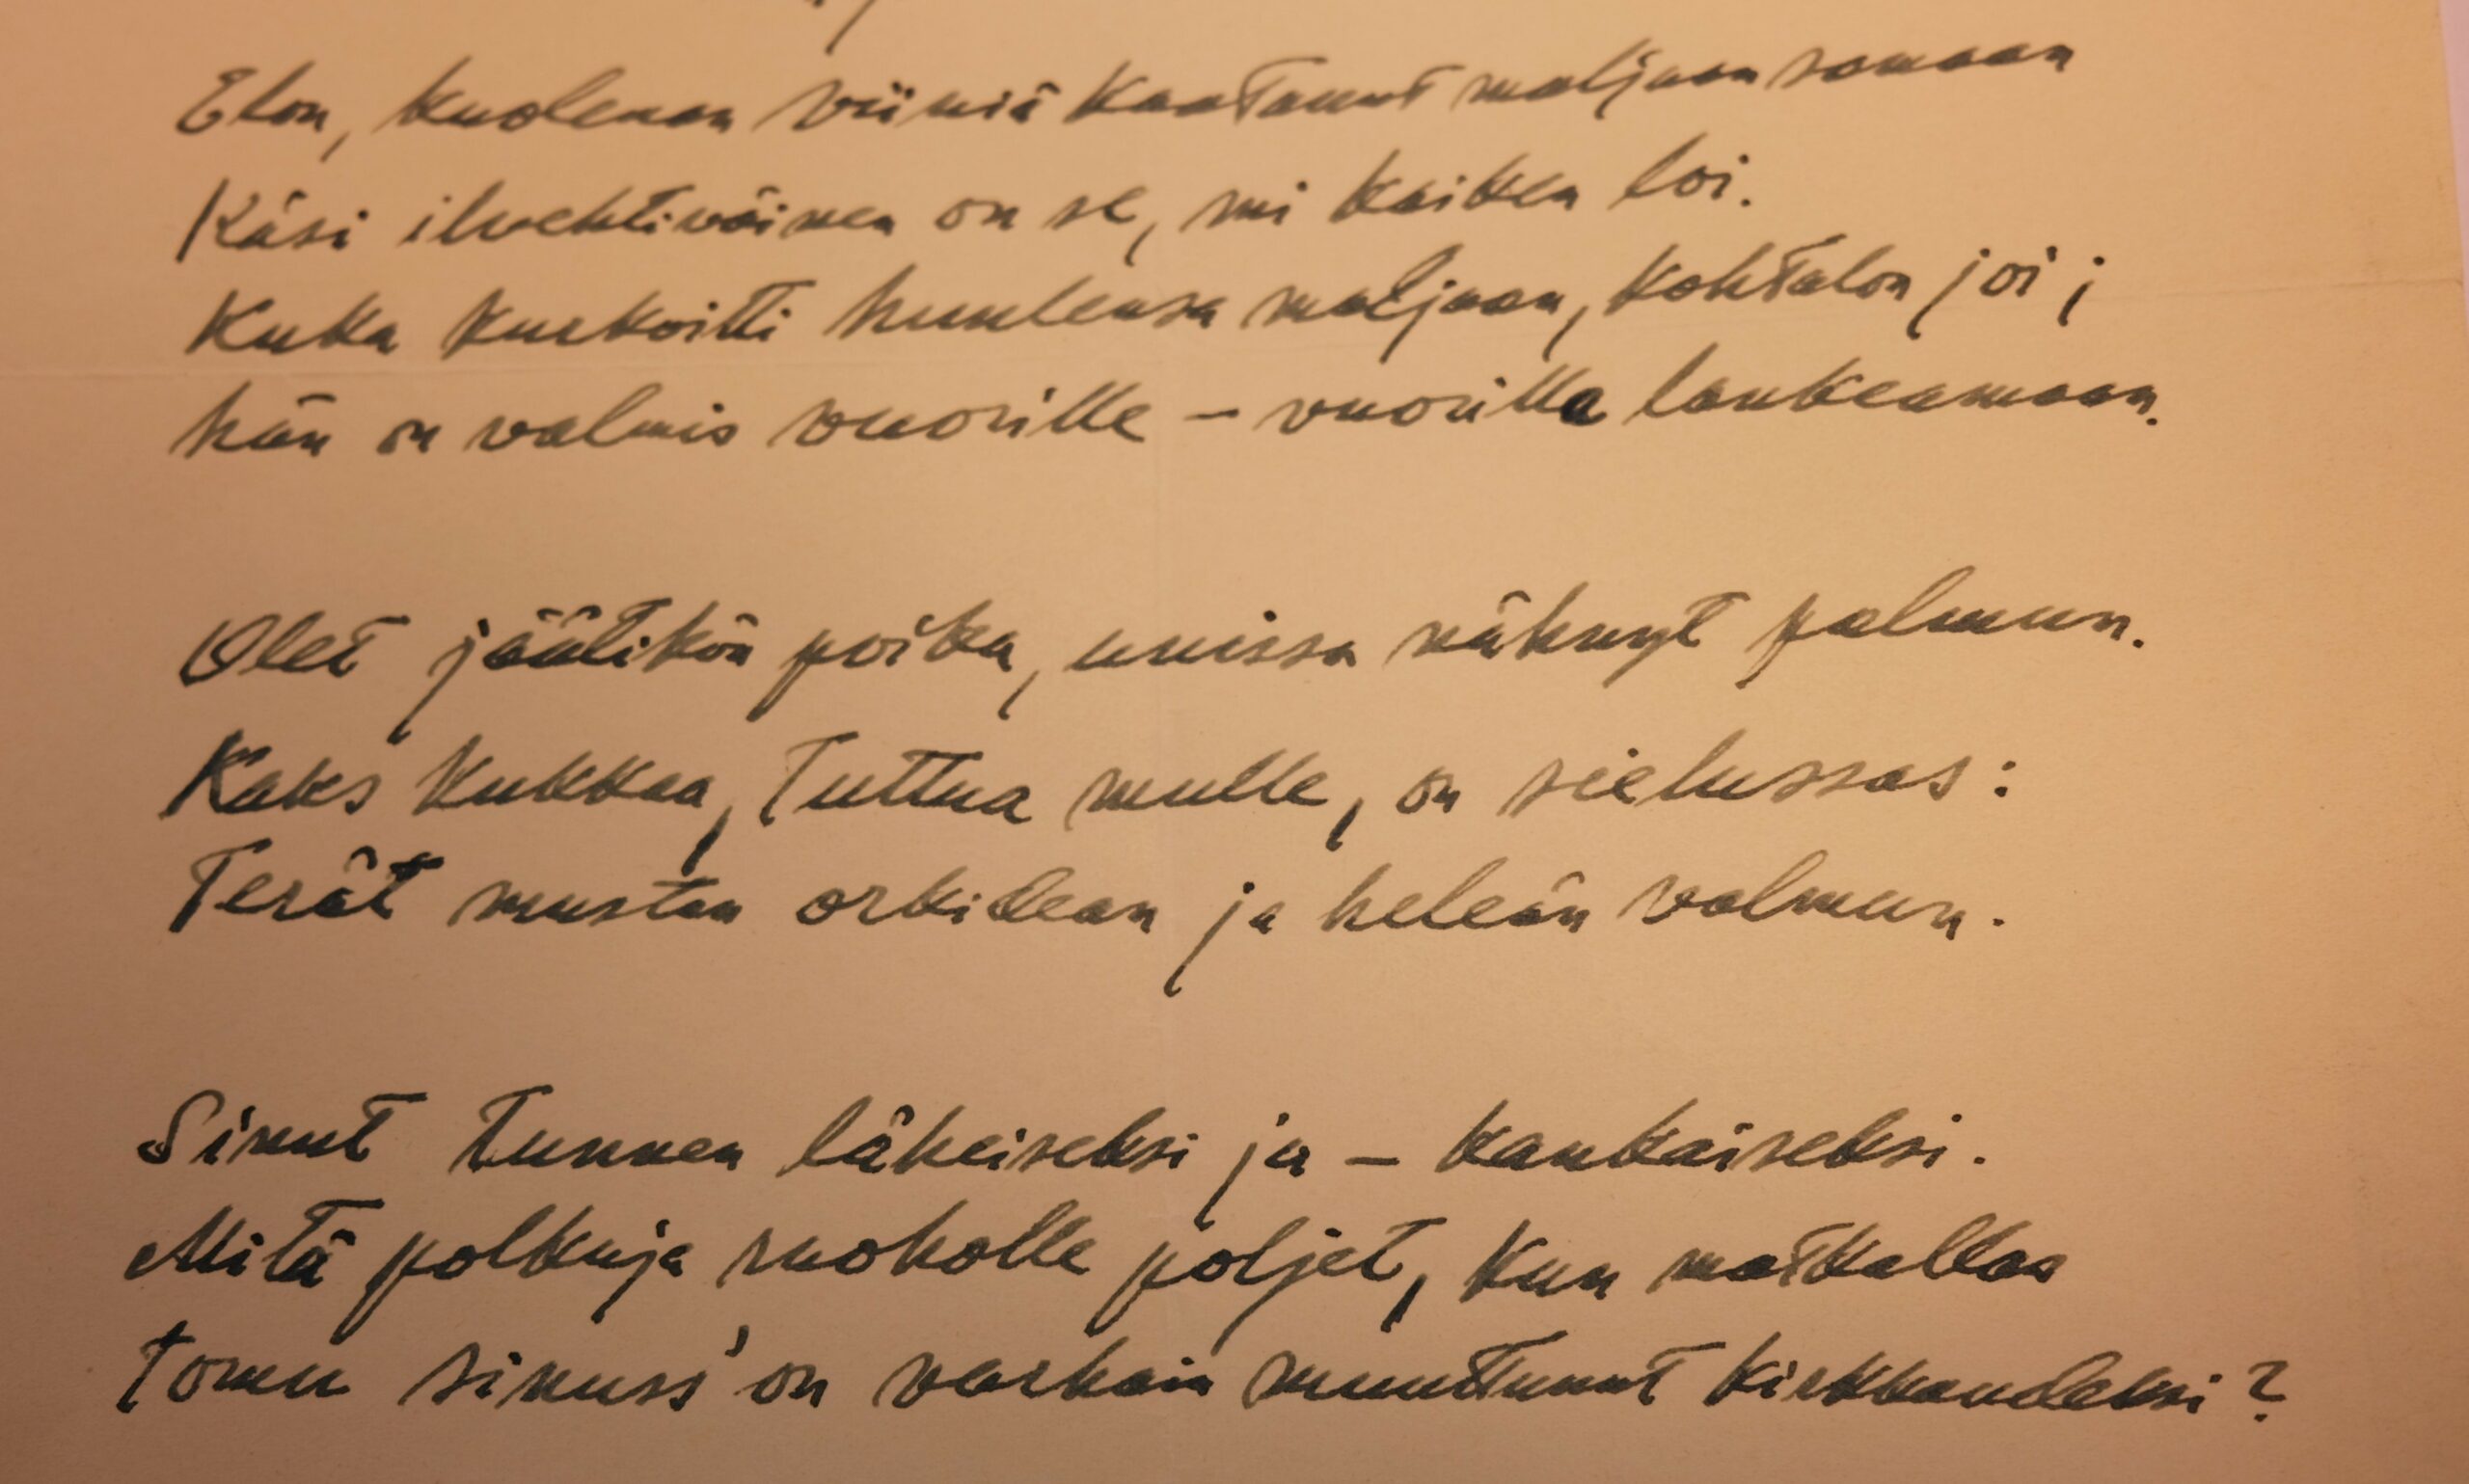 Elon, kuoleman viiniä kaatanut maljaan samaan
Käsi ilvehtiväinen on se, mi kaiken loi.
Kuka kurkoitti huulensa maljaan, kohtalon joi;
hän on valmis vuorille – vuorilla lankeamaan.
Olet jäätikön poika, unissa nähnyt palmun.
Kaks kukkaa, tuttua mulle, on sielussas:
Terät mustan orkidean ja heleän valmun.
Sinut tunnen läheiseksi ja – kaukaiseksi.
Mitä polkuja ruoholle poljet, kun matkallas
tomu sinuss' on varhain muuttunut kirkkaudeksi?